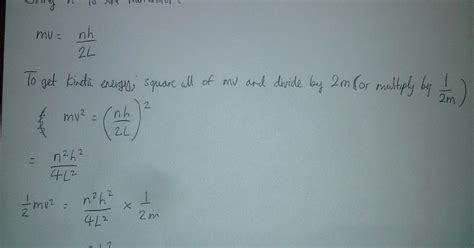 to the
mv = nh/2L
To get kinda energy, square all of mv and divide by 2m (or multiply by 1/2m)
mv² = (nh/2L)²
= n²h²/4L²
½mv² = n²h²/4L² × 1/2m